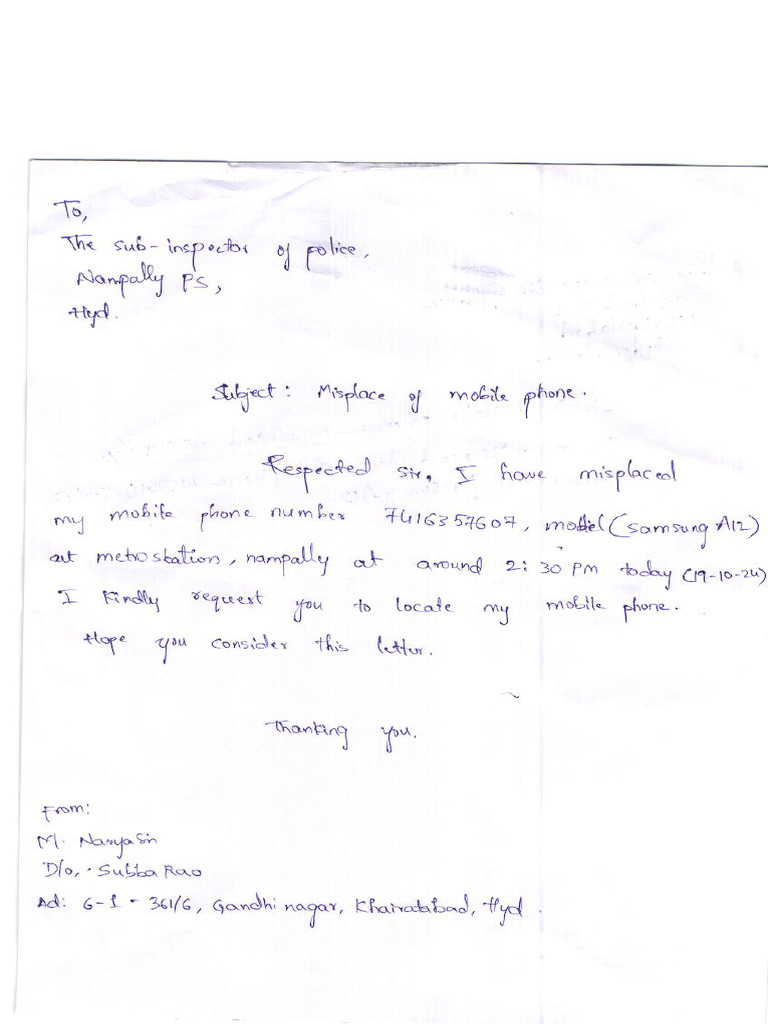 To,
The sub-inspector of police,
Nampally PS,
Hyd.
Subject: Misplace of mobile phone.
Respected sir, I have misplaced
my mobile phone number 7416357607, model (Samsung A12)
at metrostation, nampally at around 2:30 PM today (19-10-24)
I kindly request you to locate my mobile phone.
Hope you consider this letter.
Thanking you.
From:
M.
D/o, . Subba Rao
Ad: 6-1-361/6, Gandhi nagar, Khairatabad, Hyd.